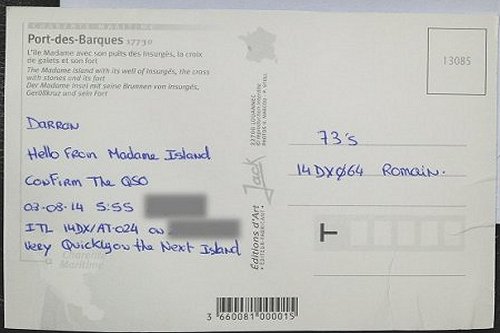 CHARENTE MARITIME
Port-des-Barques 17730
L'île Madame avec son puits des Insurgés, la croix
de galets et son fort
The Madame island with its well of Insurgés, the cross
with stones and its fort
Der Madame Insel mit seine Brunnen von Insurgés,
Geröllkruz und sein Fort
DARRAN
Hello From Madame Island
Confirm The QSO
03-08-14 5:55
ITL 14DX/AT-024 on
Very Quickly on the Next Island
Charente
Maritime
Jack
Editions d'Art
13085
73's
14DXØ64 Romain.
3 660081 000015